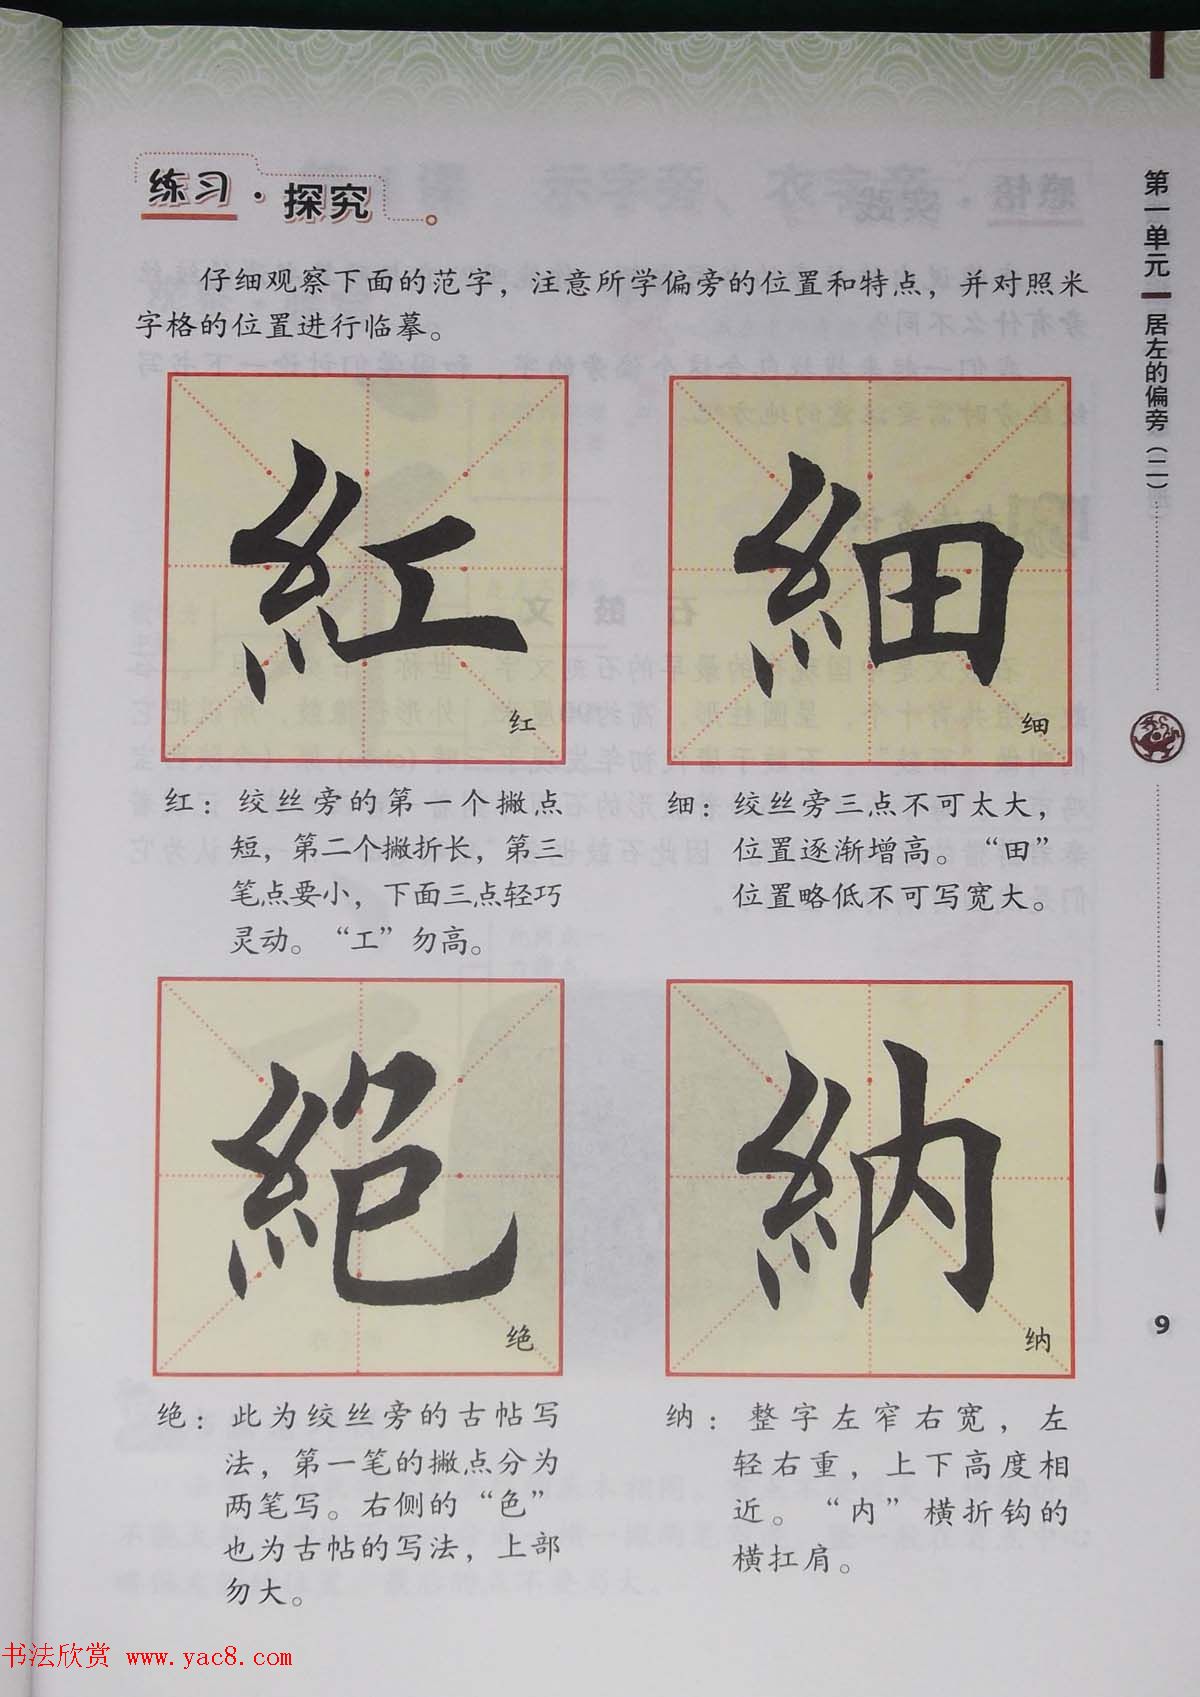 练习·探究
仔细观察下面的范字，注意所学偏旁的位置和特点，并对照米
字格的位置进行临摹。
紅
红
細
细
红：绞丝旁的第一个撇点
短，第二个撇折长，第三
笔点要小，下面三点轻巧
灵动。“工”勿高。
细：绞丝旁三点不可太大，
位置逐渐增高。“田”
位置略低不可写宽大。
絕
绝
納
纳
绝：此为绞丝旁的古帖写
法，第一笔的撇点分为
两笔写。右侧的“色”
也为古帖的写法，上部
勿大。
纳：整字左窄右宽，左
轻右重，上下高度相
近。“内”横折钩的
横扛肩。
第一单元 居左的偏旁（二）
9
书法欣赏 www.yac8.com